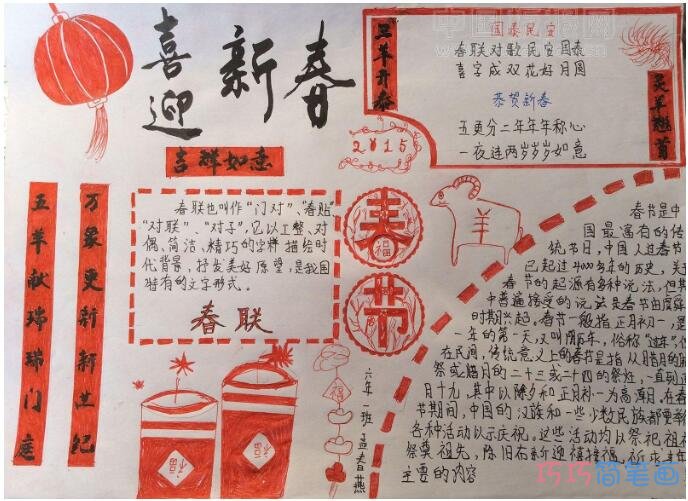 喜迎新春
三羊开泰
国泰民安
春联对歌民安国泰
喜字成双花好月圆
恭贺新春
五更分二年年年称心
一夜连两岁岁岁如意
灵羊翘首
2015
吉祥如意
五羊献瑞瑞门庭
万象更新新世纪
春联也叫作“门对”、“春贴”
“对联”、“对子”,它以工整、对
偶、简洁、精巧的文字描绘时
代背景,抒发美好愿望,是我国
特有的文字形式。
春联
春
福
节
羊
福
福
六年一班 孟春燕
春节是中
国最遍有的传
统节日,中国人过春节
已起过4000多年的历史,关于
春节的起源有多种说法,但其
中普遍接受的说法是春节由虞舜
时期兴起。春节一般指正月初一,是
一年的第一天,又叫阴历年,俗称“过年”,但
在民间,传统意义上的春节是指从腊月的腊
祭或腊月的二十三或二十四的祭灶,一直到正
月十九,其中以除夕和正月初一为高潮日,在春
节期间,中国的汉族和一些少数民族都要举
各种活动以示庆祝。这些活动均以祭祀祖
祭奠祖先、除旧布新迎禧接福、祈求丰年
主要的内容
巧巧简笔画